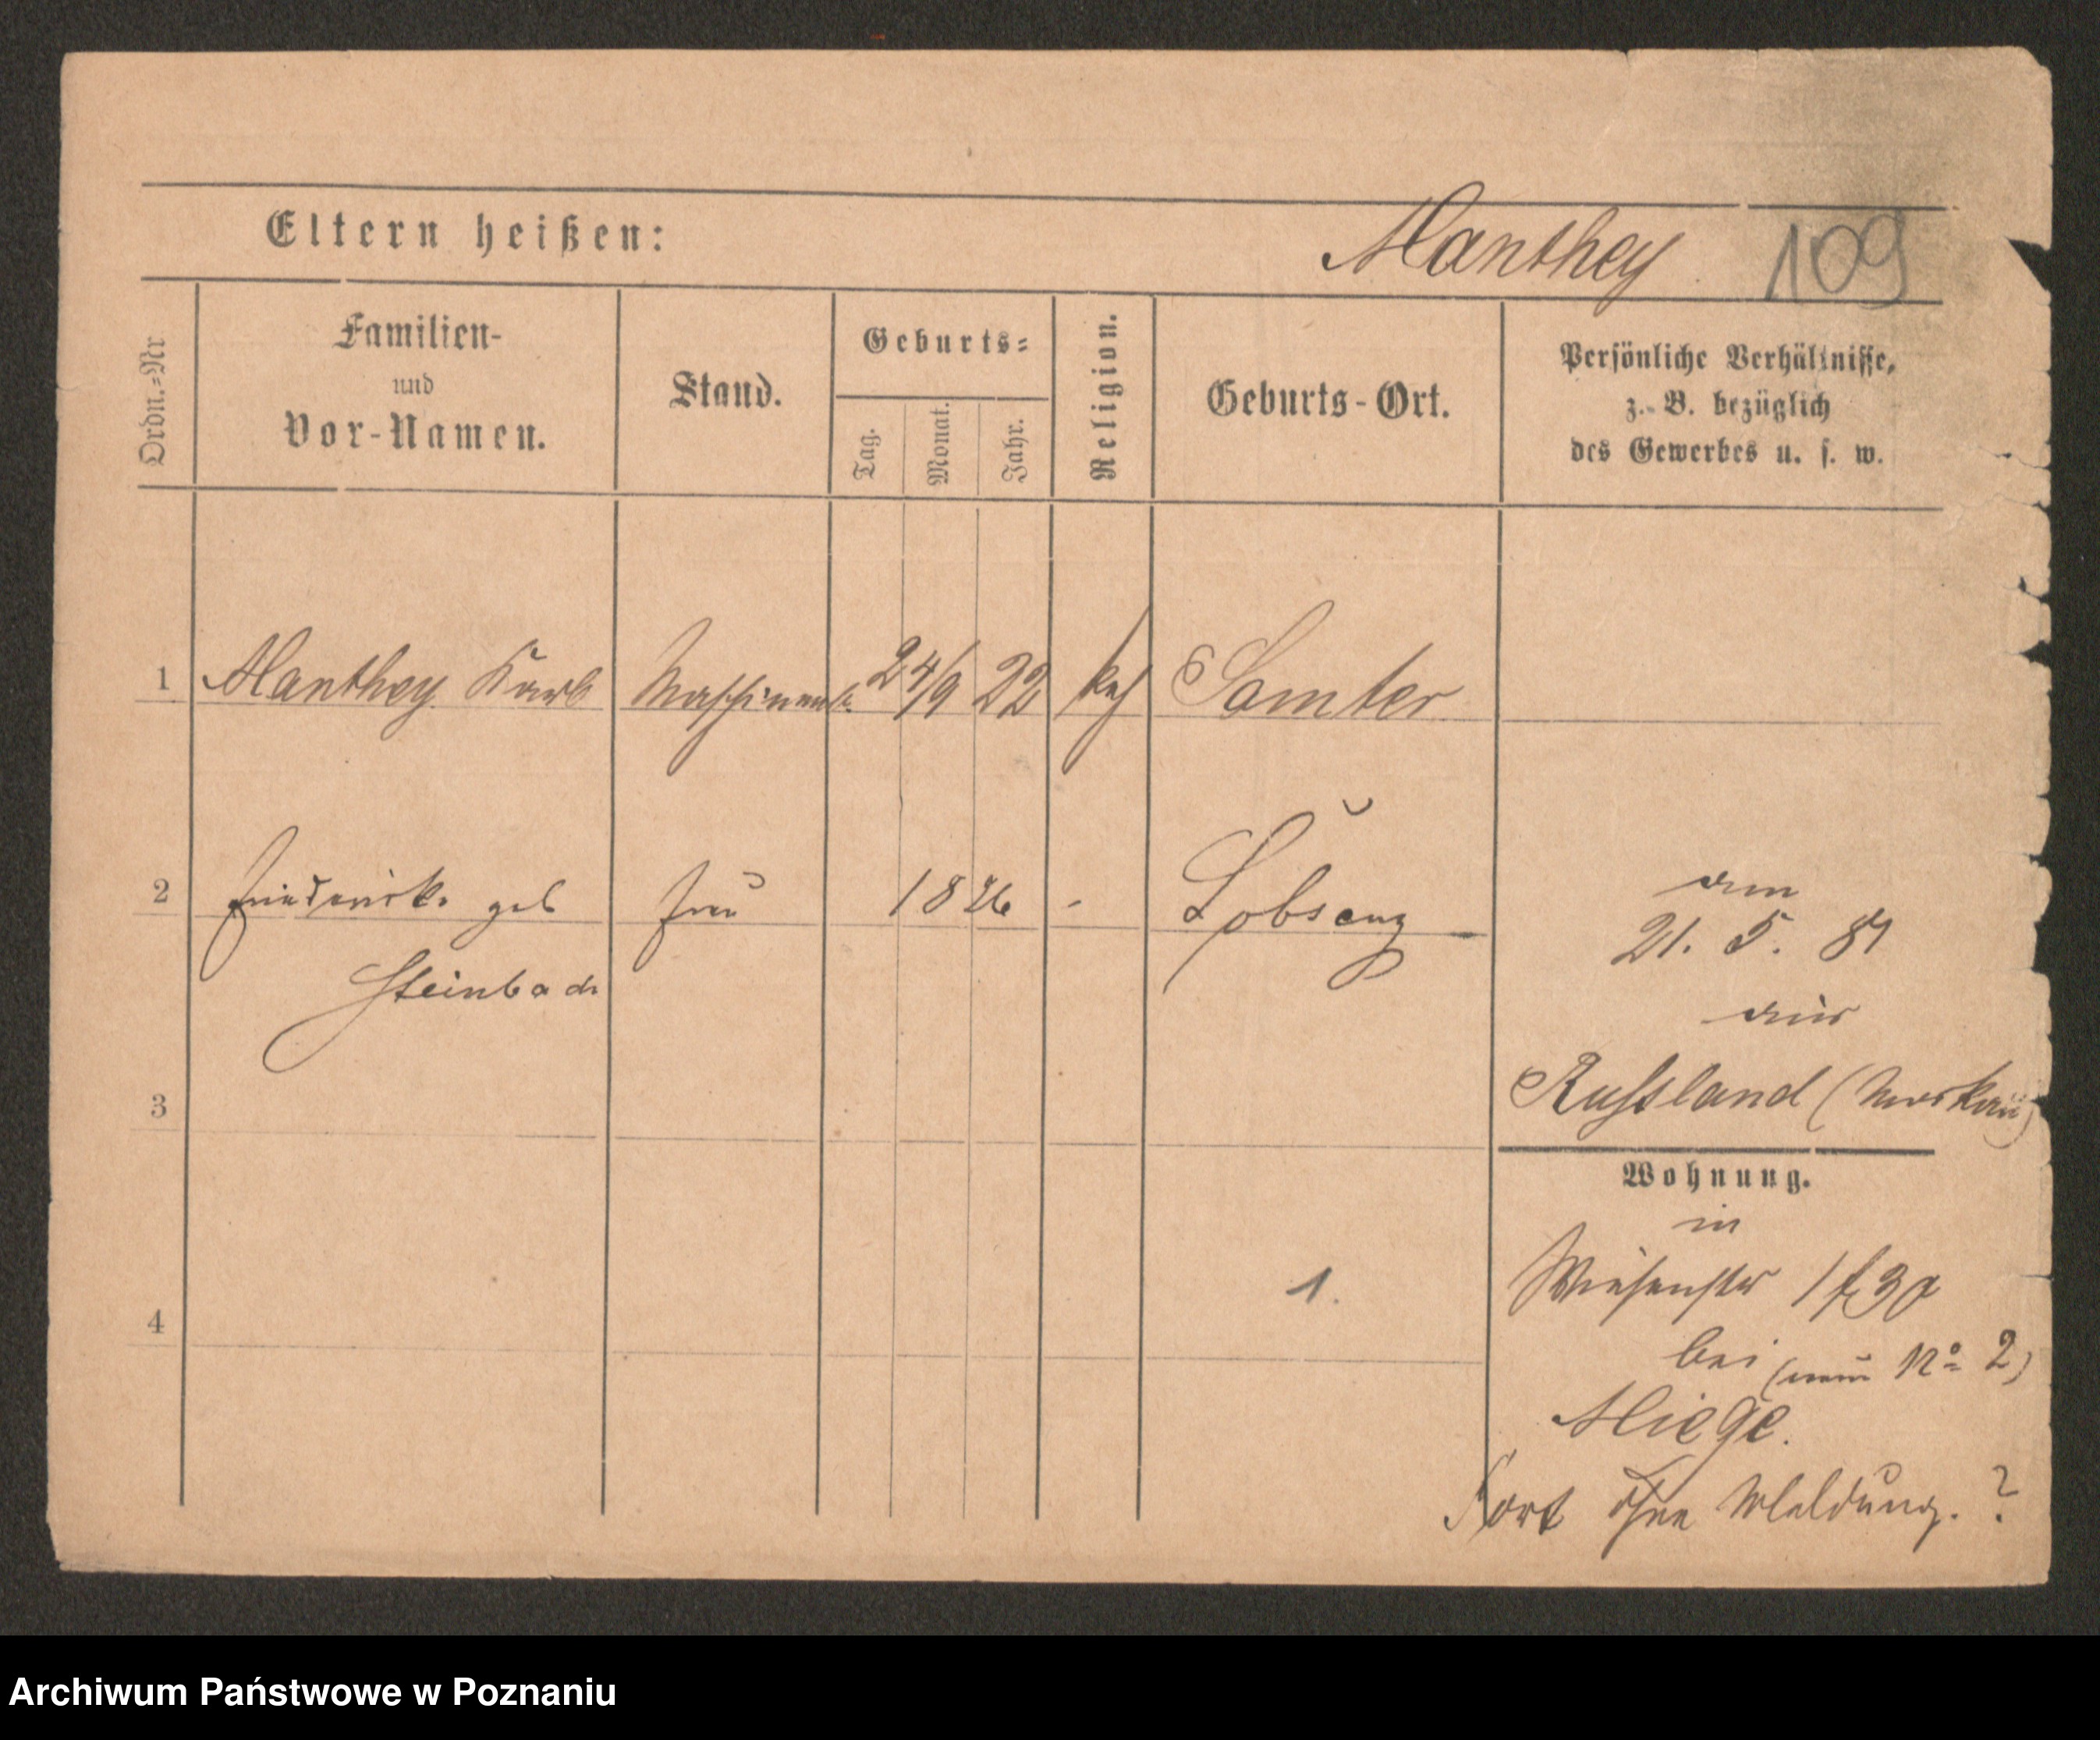 Eltern heißen:
Manthey 109
Ordn.=Nr
Familien-
und
Vor-Namen.
Stand.
Geburts=
Tag.
Monat.
Jahr.
Religion.
Geburts-Ort.
Persönliche Verhältnisse,
z. B. bezüglich
des Gewerbes u. s. w.
1 Manthey Karl 24/9 22 Samter
2 Friederike geb Frau 1826 - Lobsenz
Steinbach
am
21. 5. 81
aus
Russland (Moskau)
3
Wohnung.
in
Wiesenstr
1.
4
bei (neu No 2)
Miege.
Fort ohne Meldung. ?
Archiwum Państwowe w Poznaniu